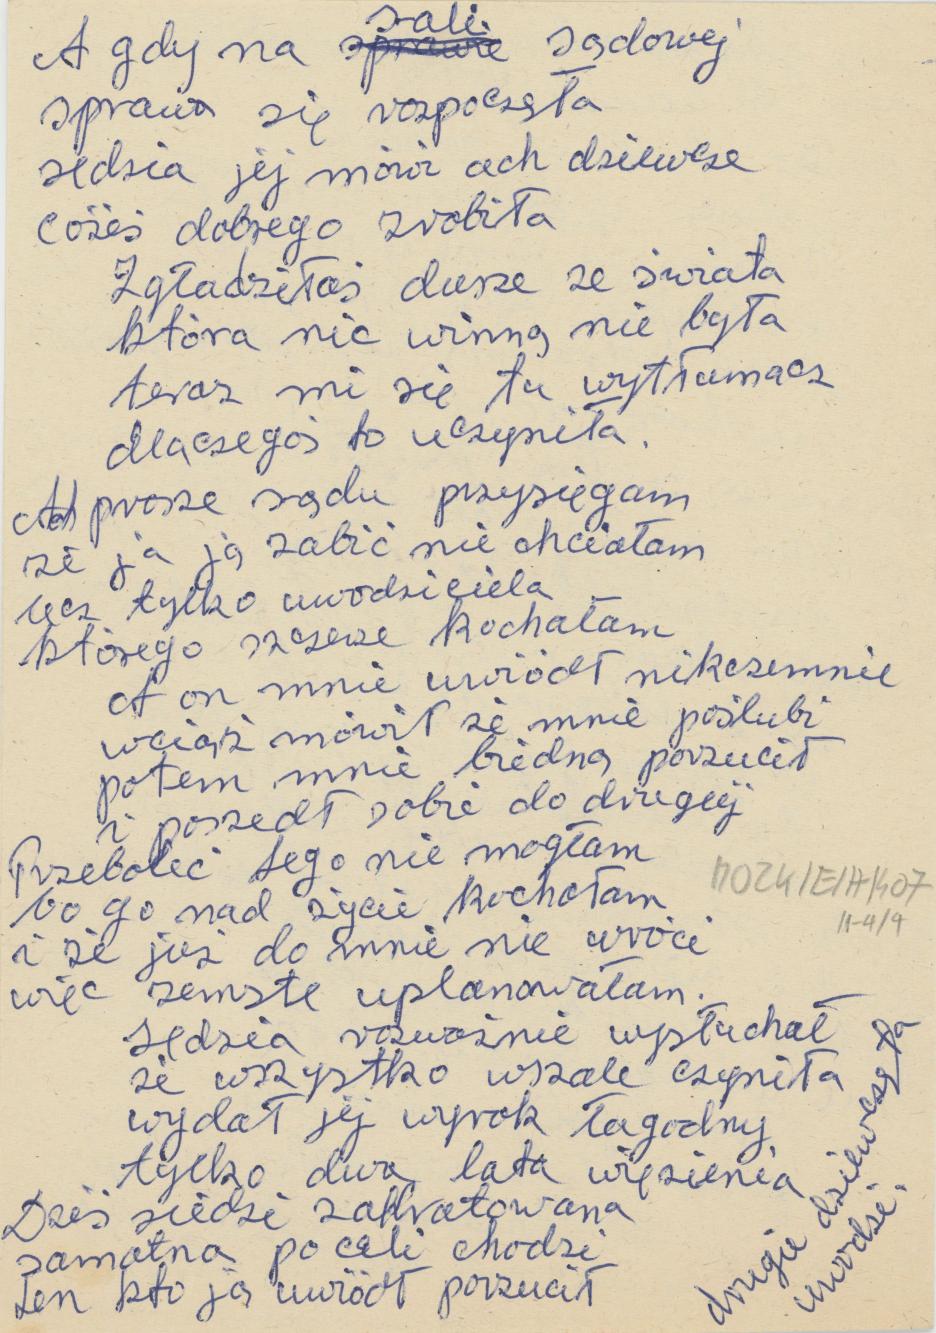 A gdy na sali sądowej
sprawa się rozpoczęła
sędzia jej mówi ach dziewcze
cożeś dobrego zrobiła
Zgładziłaś dusze ze świata
która nic winną nie była
teraz mi się tu wytłumacz
dlaczegoś to uczyniła.
Ach prosze sądu przysięgam
że ja ją zabić nie chciałam
lecz tylko uwodziciela
którego szczerze kochałam
A on mnie uwiódł nikczemnie
wciąż mówił że mnie poślubi
potem mnie biedną porzucił
i poszedł sobie do drugiej
Przeboleć tego nie mogłam
bo go nad życie kochałam
i że już do mnie nie wróci
więc zemstę uplanowałam.
Sędzia rozważnie wysłuchał
że wszystko wszale czyniła
wydał jej wyrok łagodny
tylko dwa lata więzienia
Dziś siedzi zakratowana
samotna po celi chodzi
ten kto ją uwiódł porzucił
drugie dziewczęta
uwodzi.
MOZK/E/A/407
11-4/9